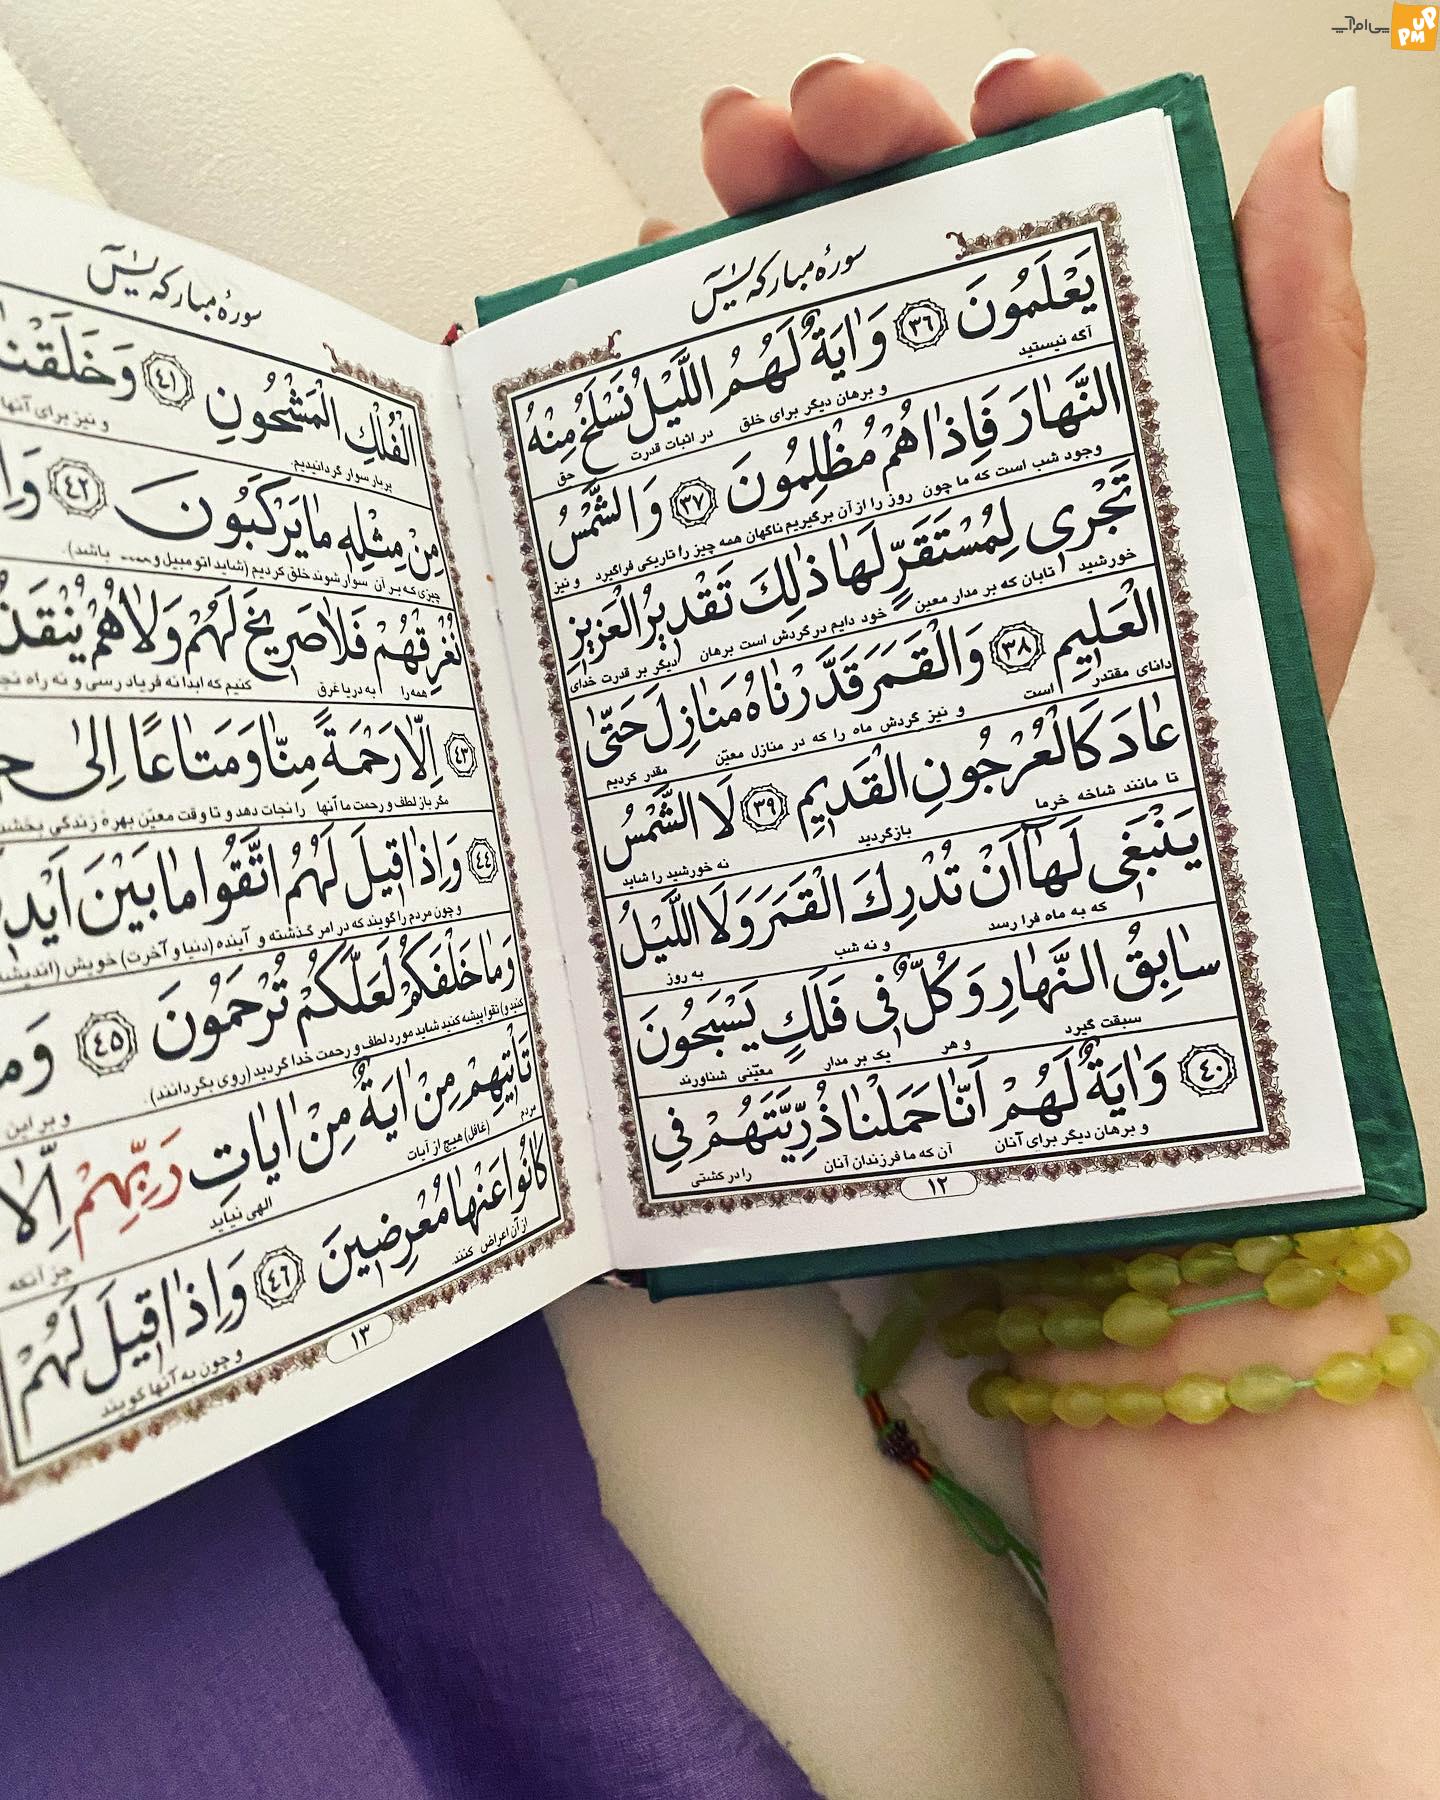 پی‌ام‌آپ
PM UP
سورهٔ مبارکه یس
یَعْلَمُونَ ٣٦ وَاٰیَةٌ لَهُمُ اللَّیْلُ نَسْلَخُ مِنْهُ
آگه نیستید و برهان دیگر برای خلق در اثبات قدرت حق
النَّهٰارَ فَاِذٰا هُمْ مُظْلِمُونَ ٣٧ وَالشَّمْسُ
وجود شب است که ما چون روز را از آن برگیریم ناگهان همه چیز را تاریکی فراگیرد و نیز
تَجْری لِمُسْتَقَرٍّ لَهٰا ذٰلِكَ تَقْدیرُ الْعَزیزِ
خورشید تابان که بر مدار معین خود دایم در گردش است برهان دیگر بر قدرت خدای
الْعَلیمِ ٣٨ وَالْقَمَرَ قَدَّرْنٰاهُ مَنٰازِلَ حَتّٰی
دانای مقتدر است و نیز گردش ماه را که در منازل معیّن مقدر کردیم
عٰادَ کَالْعُرْجُونِ الْقَدیمِ ٣٩ لَا الشَّمْسُ
تا مانند شاخه خرما بازگردید نه خورشید را شاید
یَنْبَغی لَهٰا اَنْ تُدْرِكَ الْقَمَرَ وَلَا اللَّیْلُ
که به ماه فرا رسد و نه شب به روز
سٰابِقُ النَّهٰارِ وَکُلٌّ فی فَلَكٍ یَسْبَحُونَ
سبقت گیرد و هر یک بر مدار معیّنی شناورند
٤٠ وَاٰیَةٌ لَهُمْ اَنّٰا حَمَلْنٰا ذُرِّیَّتَهُمْ فِی
و برهان دیگر برای آنان آن که ما فرزندان آنان را در کشتی
١٢
سورهٔ مبارکه یس
الْفُلْكِ الْمَشْحُونِ ٤١ وَخَلَقْنٰا
بربار سوار گردانیدیم. و نیز برای آنها
مِنْ مِثْلِهِ مٰا یَرْکَبُونَ ٤٢
چیزی که بر آن سوار شوند خلق کردیم (شاید اتومبیل و.... باشد).
نُغْرِقْهُمْ فَلٰا صَریخَ لَهُمْ وَلٰا هُمْ
همه را به دریا غرق کنیم که ابدا نه فریاد رسی و نه راه
٤٣ اِلّٰا رَحْمَةً مِنّٰا وَمَتٰاعًا اِلٰی
مگر باز لطف و رحمت ما آنها را نجات دهد و تا وقت معیّن بهرهٔ زندگی
٤٤ وَاِذٰا قیلَ لَهُمُ اتَّقُوا مٰا بَیْنَ
و چون مردم را گویند که در امر گذشته و آینده (دنیا و آخرت) خویش
وَمٰا خَلْفَکُمْ لَعَلَّکُمْ تُرْحَمُونَ ٤٥
کنید و) تقوا پیشه کنید شاید مورد لطف و رحمت خدا گردید (روی بگردانند). و بر این
تَأْتیهِمْ مِنْ اٰیَةٍ مِنْ اٰیٰاتِ رَبِّهِمْ اِلّٰا
مردم (غافل) هیچ از آیات الهی نیاید جز آنکه
کٰانُوا عَنْهٰا مُعْرِضینَ ٤٦ وَاِذٰا قیلَ لَهُمْ
از آن اعراض کنند. و چون به آنها گویند
١٣